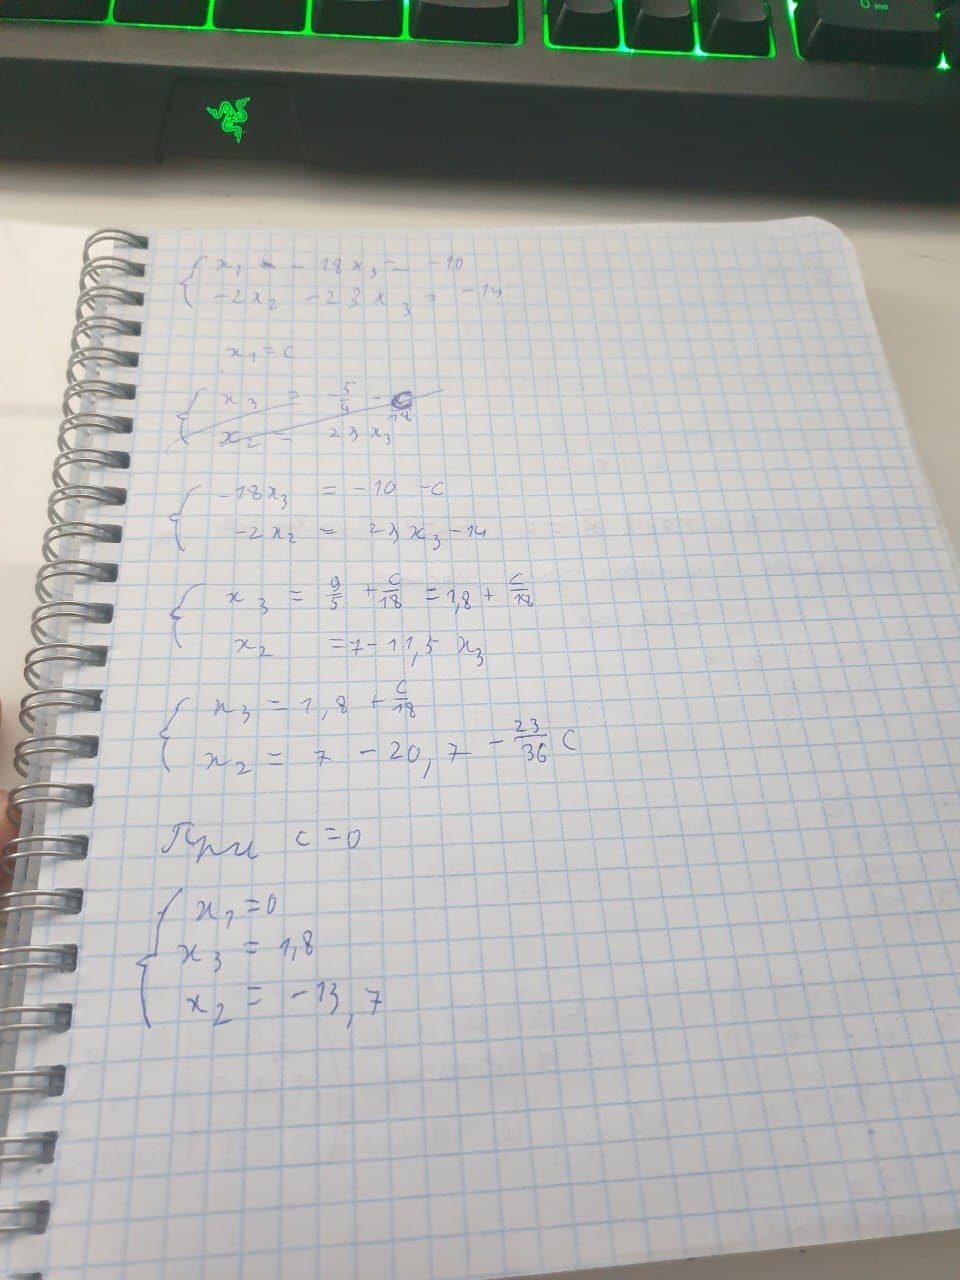 x₁ - - 18x₃ = -10
-2x₂ - 23x₃ = -14
x₁ = c
x₃ = -5/9 - c/18
x₂ = 23x₃
-18x₃ = -10 - c
-2x₂ = 23x₃ - 14
x₃ = 9/5 + c/18 = 1,8 + c/18
x₂ = 7 - 11,5 x₃
x₃ = 1,8 + c/18
x₂ = 7 - 20,7 - 23/36 c
При c = 0
x₁ = 0
x₃ = 1,8
x₂ = -13,7